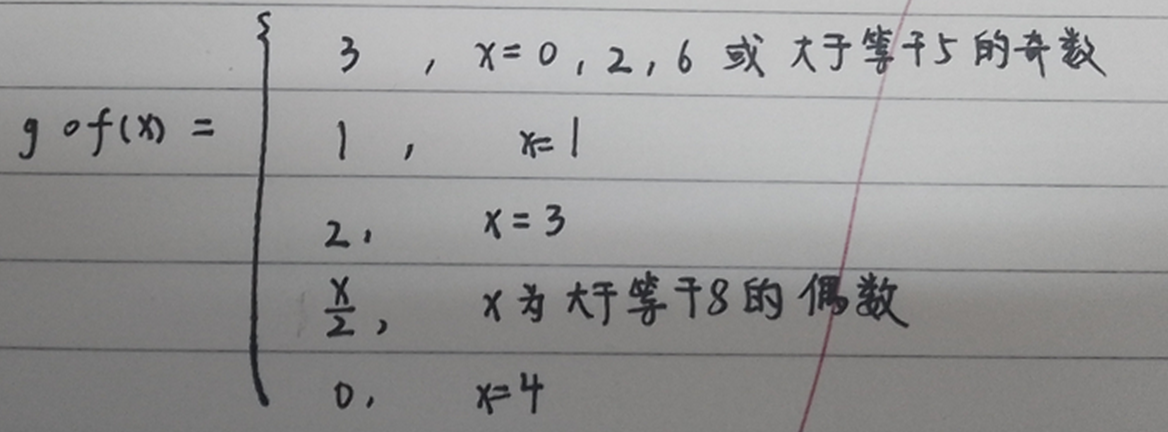 3 , x=0,2,6 或 大于等于5的奇数
g∘f(x) = { 1 , x=1
2, x=3
x/2, x为大于等于8的偶数
0, x=4